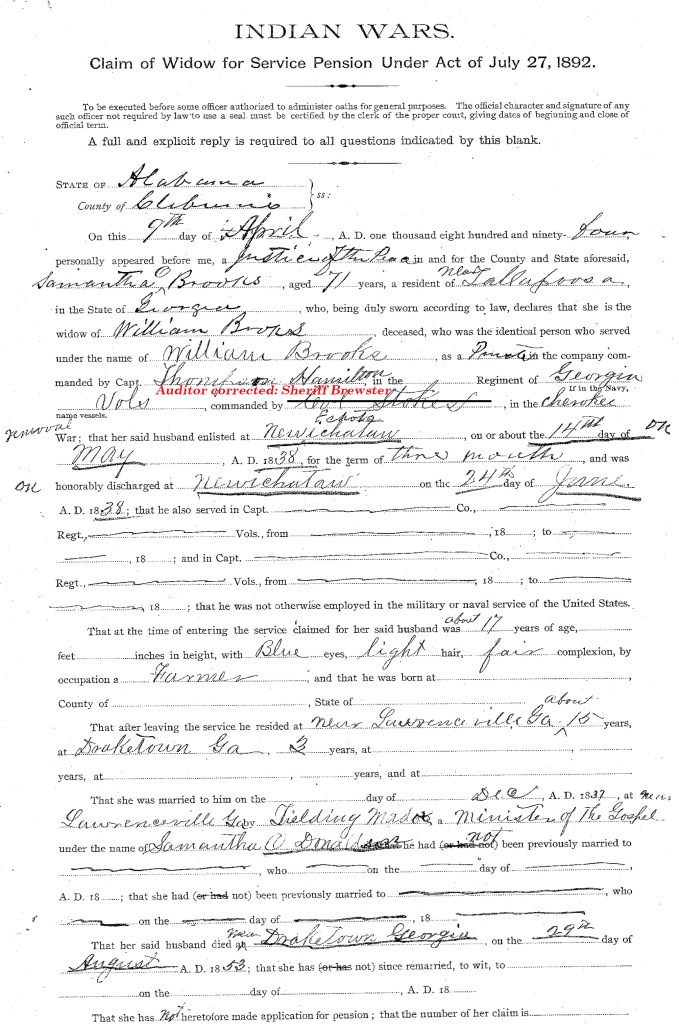 INDIAN WARS.
Claim of Widow for Service Pension Under Act of July 27, 1892.
To be executed before some officer authorized to administer oaths for general purposes. The official character and signature of any
such officer not required by law to use a seal must be certified by the clerk of the proper court, giving dates of beginning and close of
official term.
A full and explicit reply is required to all questions indicated by this blank.
STATE OF Alabama
County of Cleburne } ss:
On this 9th day of April, A. D. one thousand eight hundred and ninety-four
personally appeared before me, a Justice of the Peace in and for the County and State aforesaid,
Samantha C Brooks, aged 71 years, a resident of Near Tallapoosa,
in the State of Georgia, who, being duly sworn according to law, declares that she is the
widow of William Brooks, deceased, who was the identical person who served
under the name of William Brooks, as a Private in the company com-
manded by Capt. Hamilton, in the Regiment of Georgia
Auditor corrected: Sheriff Brewster
Vols, commanded by Stokes, in the Cherokee
If in the Navy,
name vessels.
removal War; that her said husband enlisted at New Echota, on or about the 14th day of OK
May, A. D. 1838, for the term of three month, and was
OK honorably discharged at Newichataw on the 24th day of June.
A. D. 1838; that he also served in Capt. Co.,
Regt., Vols., from , 18 ; to
, 18 ; and in Capt. Co.,
Regt., Vols., from , 18 ; to
, 18 ; that he was not otherwise employed in the military or naval service of the United States.
That at the time of entering the service claimed for her said husband was about 17 years of age,
feet inches in height, with Blue eyes, light hair, fair complexion, by
occupation a Farmer, and that he was born at ,
County of , State of
That after leaving the service he resided at near Lawrenceville Ga. about 15 years,
at Draketown Ga, 3 years, at ,
years, at , years, and at
That she was married to him on the day of Dec, A. D. 1837, at near
Lawrenceville Ga, by Fielding a Minister of The Gospel
under the name of Samantha C Donaldson that he had (or had not) not been previously married to
, who on the day of ,
A. D. 18 ; that she had (or had not) been previously married to , who
on the day of , 18
That her said husband died at near Draketown Georgia, on the 29th day of
August A. D. 1853; that she has (or has not) since remarried, to wit, to
on the day of , A. D. 18
That she has Not heretofore made application for pension; that the number of her claim is